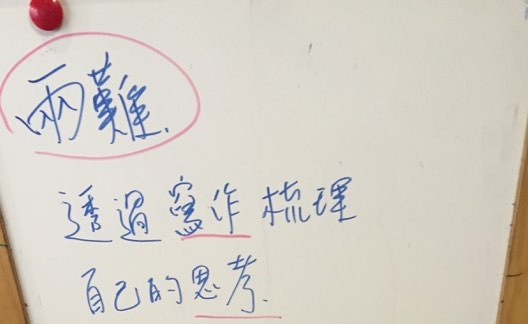 兩難.
透過寫作梳理
自己的思考.